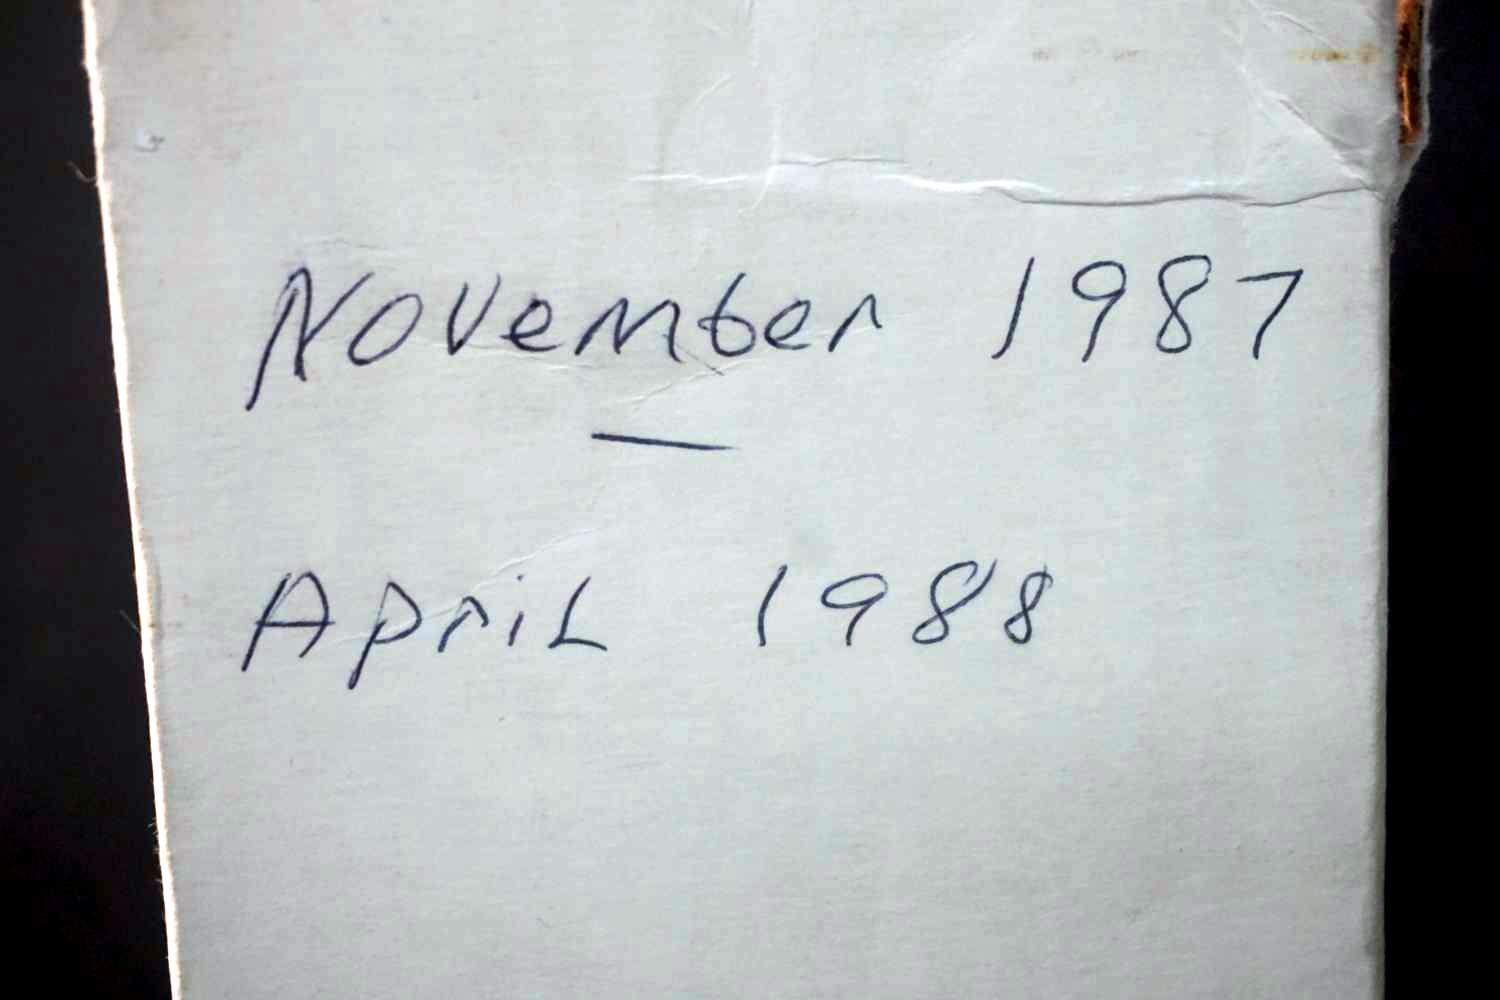 November 1987
—
April 1988